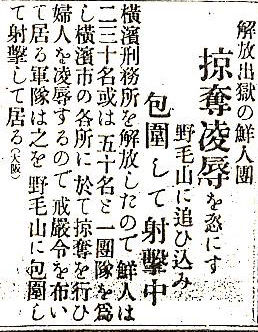 解放出獄の鮮人團
掠奪凌辱を恣にす
野毛山に追ひ込み
包圍して射擊中
橫濱刑務所を解放したので鮮人は
二三十名或は五十名と一團隊を爲
し橫濱市の各所に於て掠奪を行ひ
婦人を凌辱するので戒嚴令を布い
て居る軍隊は之を野毛山に包圍し
て射擊して居る(大阪)